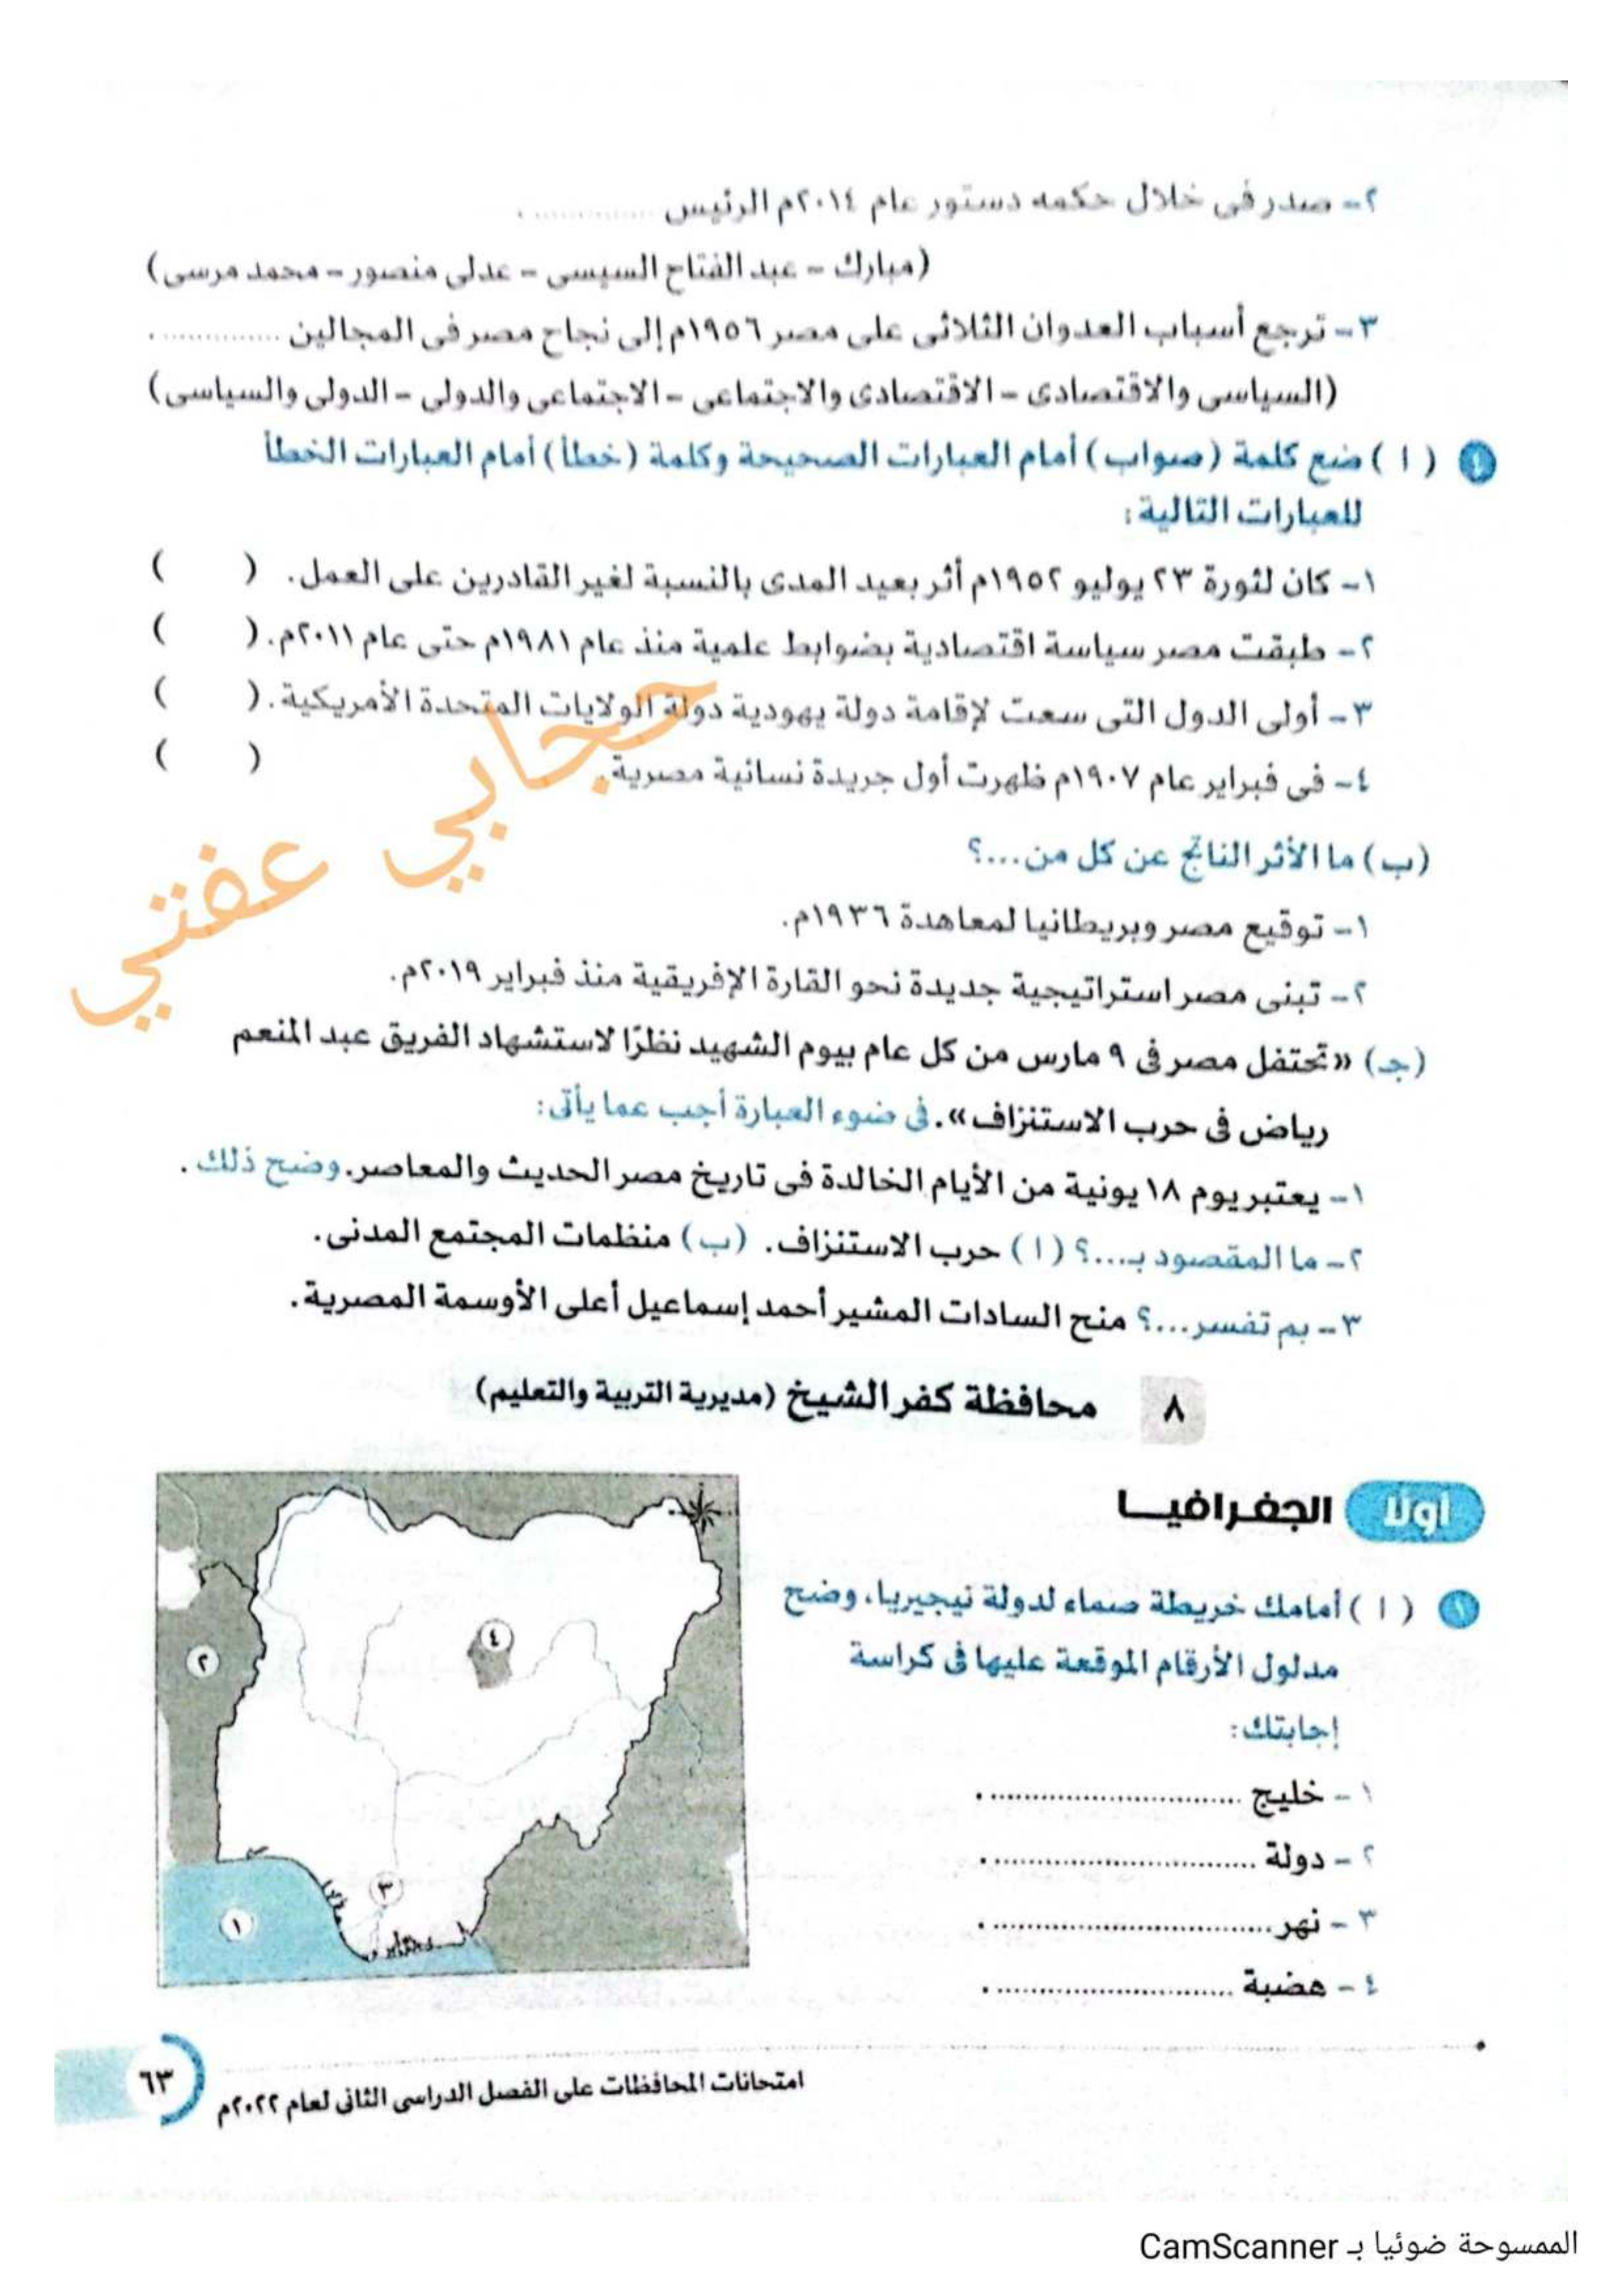 ٢- صدر فى خلال حكمه دستور عام ٢٠١٤م الرئيس ............ .
(مبارك - عبد الفتاح السيسى - عدلى منصور - محمد مرسى)
٣- ترجع أسباب العدوان الثلاثى على مصر ١٩٥٦م إلى نجاح مصر فى المجالين ............. .
(السياسى والاقتصادى - الاقتصادى والاجتماعى - الاجتماعى والدولى - الدولى والسياسى)
٤ ( ا ) ضع كلمة (صواب) أمام العبارات الصحيحة وكلمة (خطأ) أمام العبارات الخطأ
للعبارات التالية:
١- كان لثورة ٢٣ يوليو ١٩٥٢م أثر بعيد المدى بالنسبة لغير القادرين على العمل. ( )
٢- طبقت مصر سياسة اقتصادية بضوابط علمية منذ عام ١٩٨١م حتى عام ٢٠١١م. ( )
٣- أولى الدول التى سعت لإقامة دولة يهودية دولة الولايات المتحدة الأمريكية. ( )
٤- فى فبراير عام ١٩٠٧م ظهرت أول جريدة نسائية مصرية. ( )
حجابي عفتي
(ب) ما الأثر الناتج عن كل من...؟
١- توقيع مصر وبريطانيا لمعاهدة ١٩٣٦م.
٢- تبنى مصر استراتيجية جديدة نحو القارة الإفريقية منذ فبراير ٢٠١٩م.
(جـ) «تحتفل مصر فى ٩ مارس من كل عام بيوم الشهيد نظرًا لاستشهاد الفريق عبد المنعم
رياض فى حرب الاستنزاف». فى ضوء العبارة أجب عما يأتى:
١- يعتبر يوم ١٨ يونية من الأيام الخالدة فى تاريخ مصر الحديث والمعاصر. وضح ذلك.
٢- ما المقصود بـ...؟ ( ا ) حرب الاستنزاف. (ب) منظمات المجتمع المدنى.
٣- بم تفسر...؟ منح السادات المشير أحمد إسماعيل أعلى الأوسمة المصرية.
٨ محافظة كفر الشيخ (مديرية التربية والتعليم)
أولًا الجغرافيا
١ ( ا ) أمامك خريطة صماء لدولة نيجيريا، وضح
مدلول الأرقام الموقعة عليها فى كراسة
إجابتك:
١- خليج ............................ .
٢- دولة ............................ .
٣- نهر ............................ .
٤- هضبة ............................ .
٤
٢
٣
١
امتحانات المحافظات على الفصل الدراسى الثانى لعام ٢٠٢٢م
٦٣
الممسوحة ضوئيا بـ CamScanner